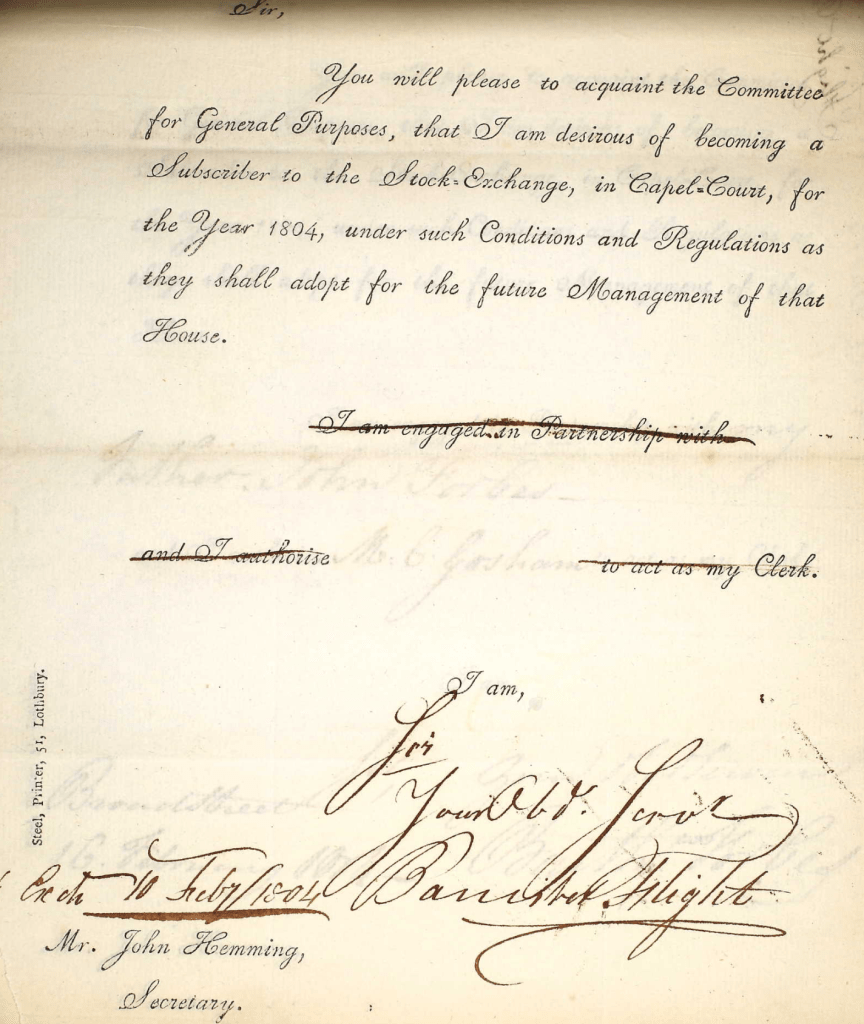 Sir,
You will please to acquaint the Committee
for General Purposes, that I am desirous of becoming a
Subscriber to the Stock-Exchange, in Capel-Court, for
the Year 1804, under such Conditions and Regulations as
they shall adopt for the future Management of that
House.
I am engaged in Partnership with
and I authorise to act as my Clerk.
I am,
Sir
Your Obdt. Servt
Banister Flight
10 Feby 1804
Mr. John Hemming,
Secretary.
Steel, Printer, 51, Lothbury.